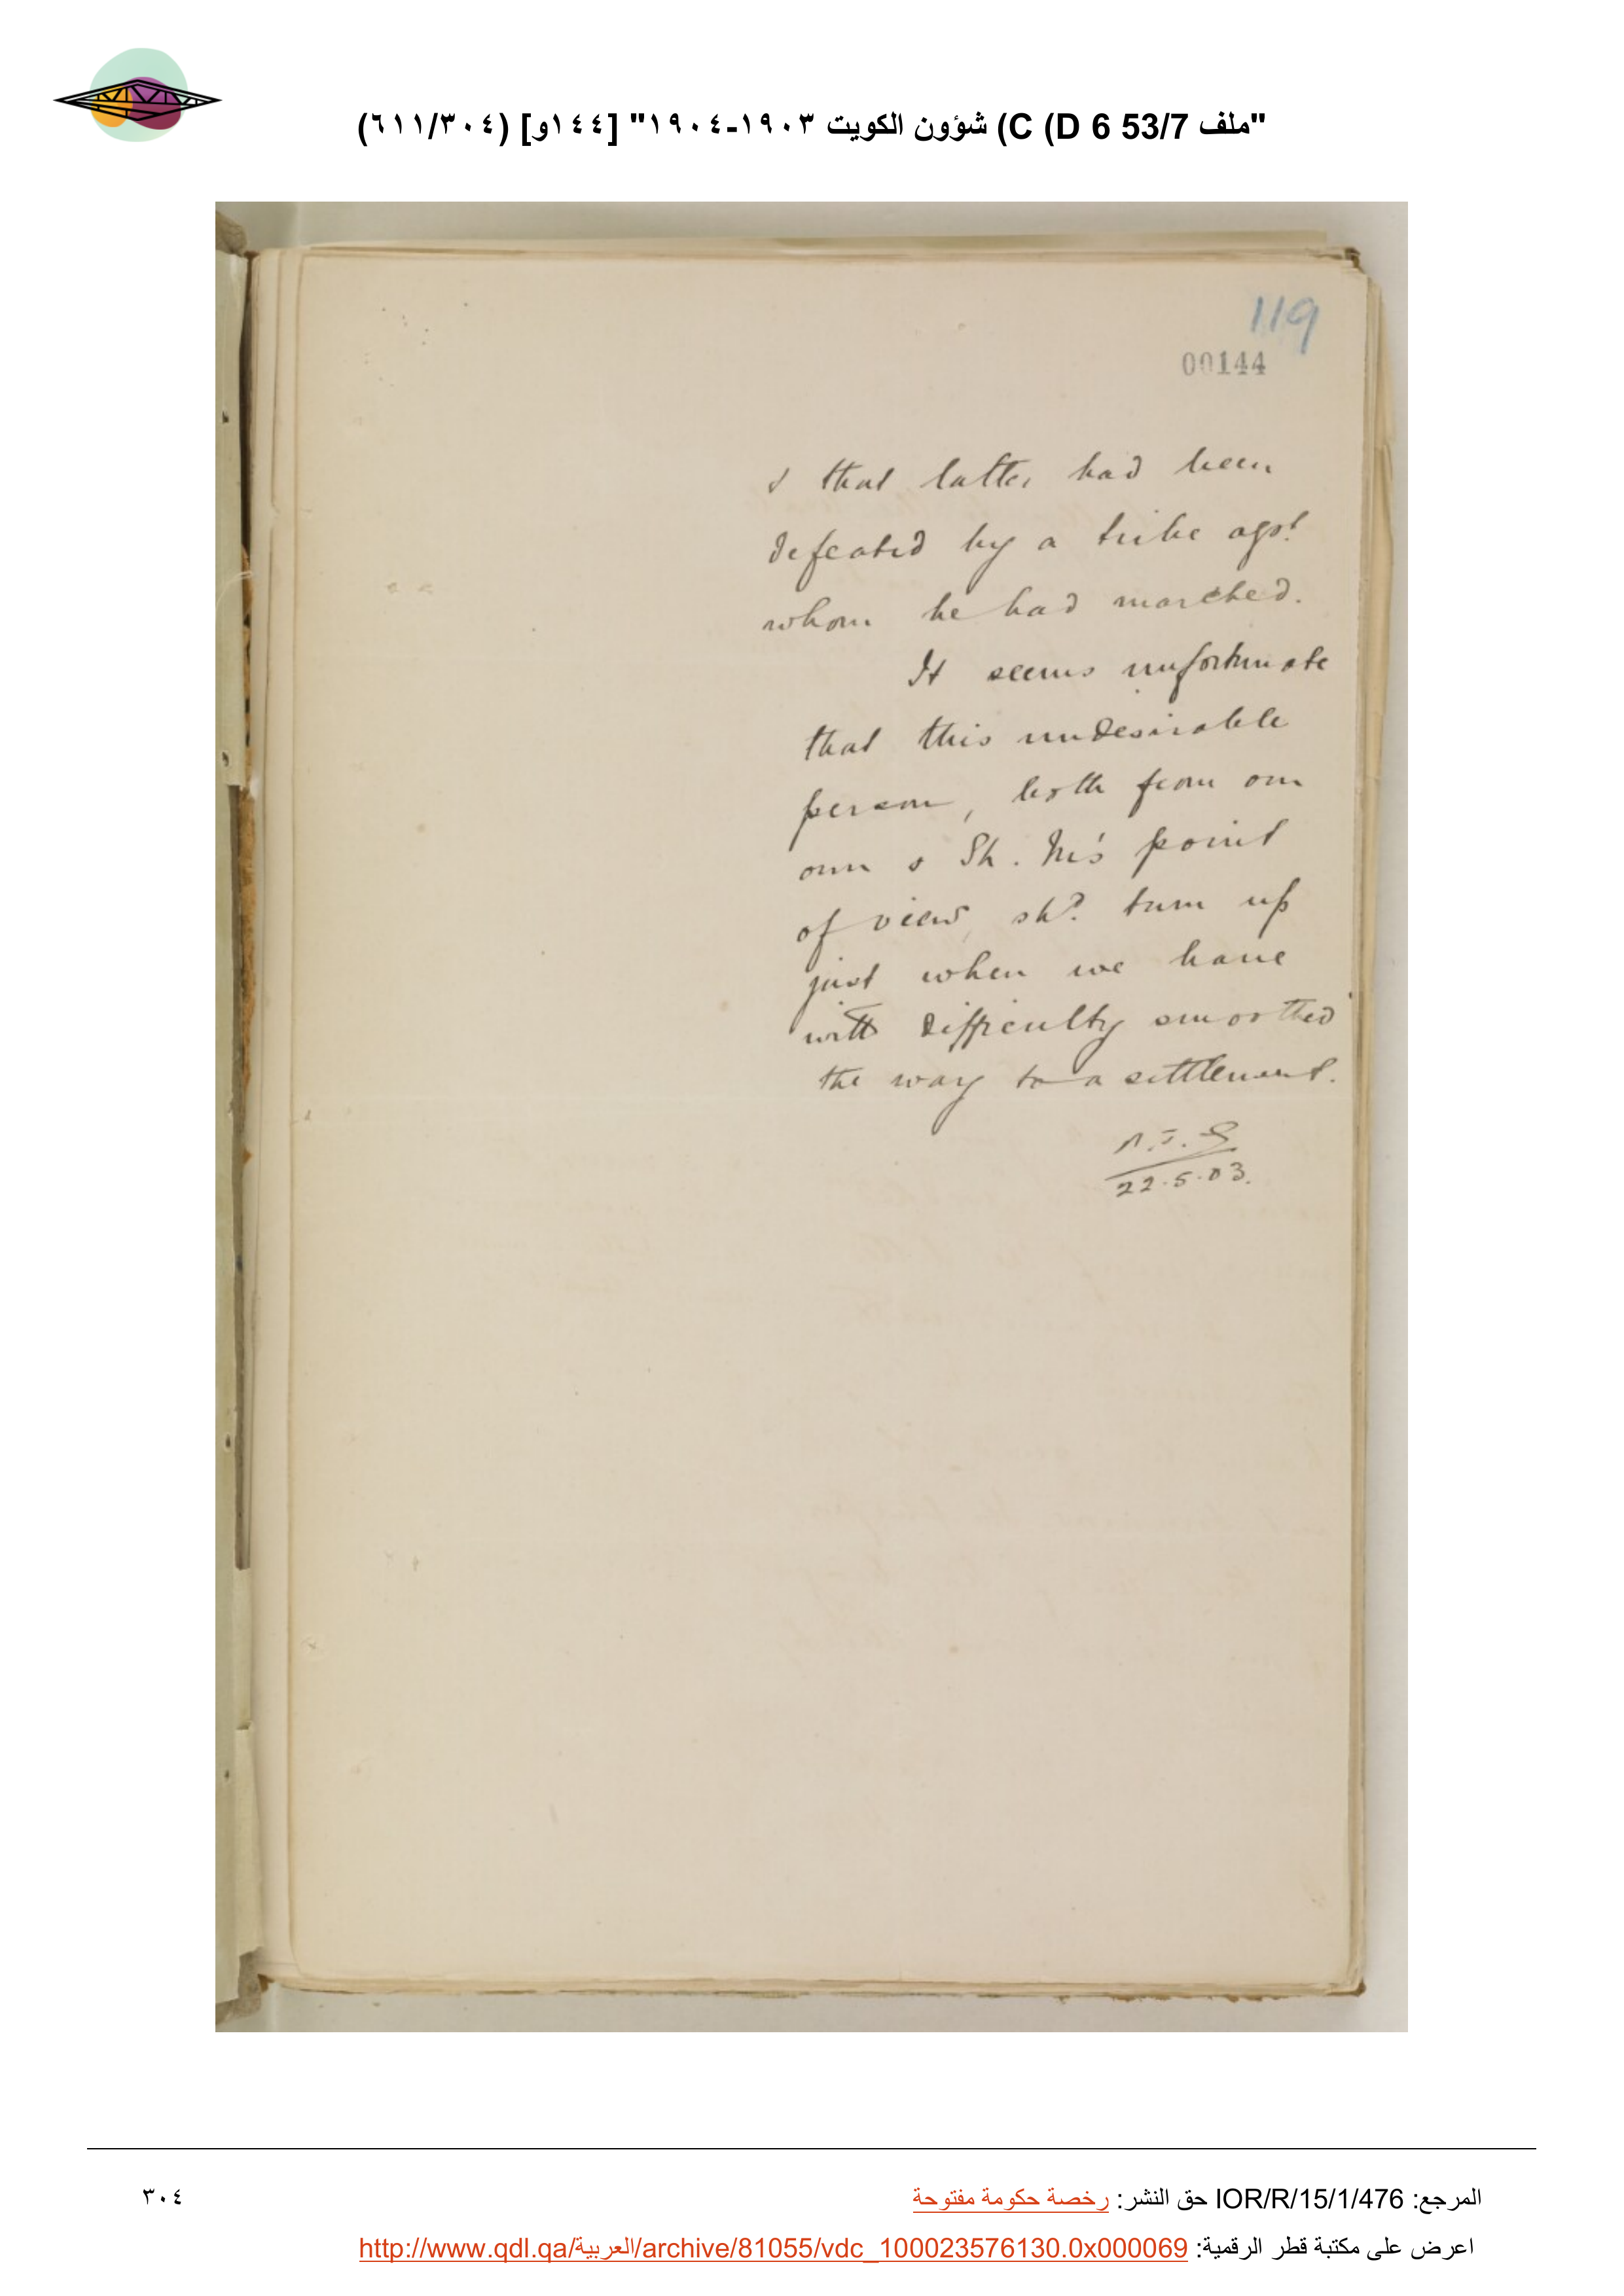 "ملف 53/7 D 6) C) شؤون الكويت ١٩٠٣-١٩٠٤" [١٤٤و] (٦١١/٣٠٤)
119
00144
& that latter had been
defeated by a tribe agst
whom he had marched.
It seems unfortunate
that this undesirable
person, both from our
own & Sh. M's point
of view, shd. turn up
just when we have
with difficulty smoothed
the way to a settlement.
22.5.03.
المرجع: IOR/R/15/1/476 حق النشر: رخصة حكومة مفتوحة
٣٠٤
اعرض على مكتبة قطر الرقمية: http://www.qdl.qa/العربية/archive/81055/vdc_100023576130.0x000069